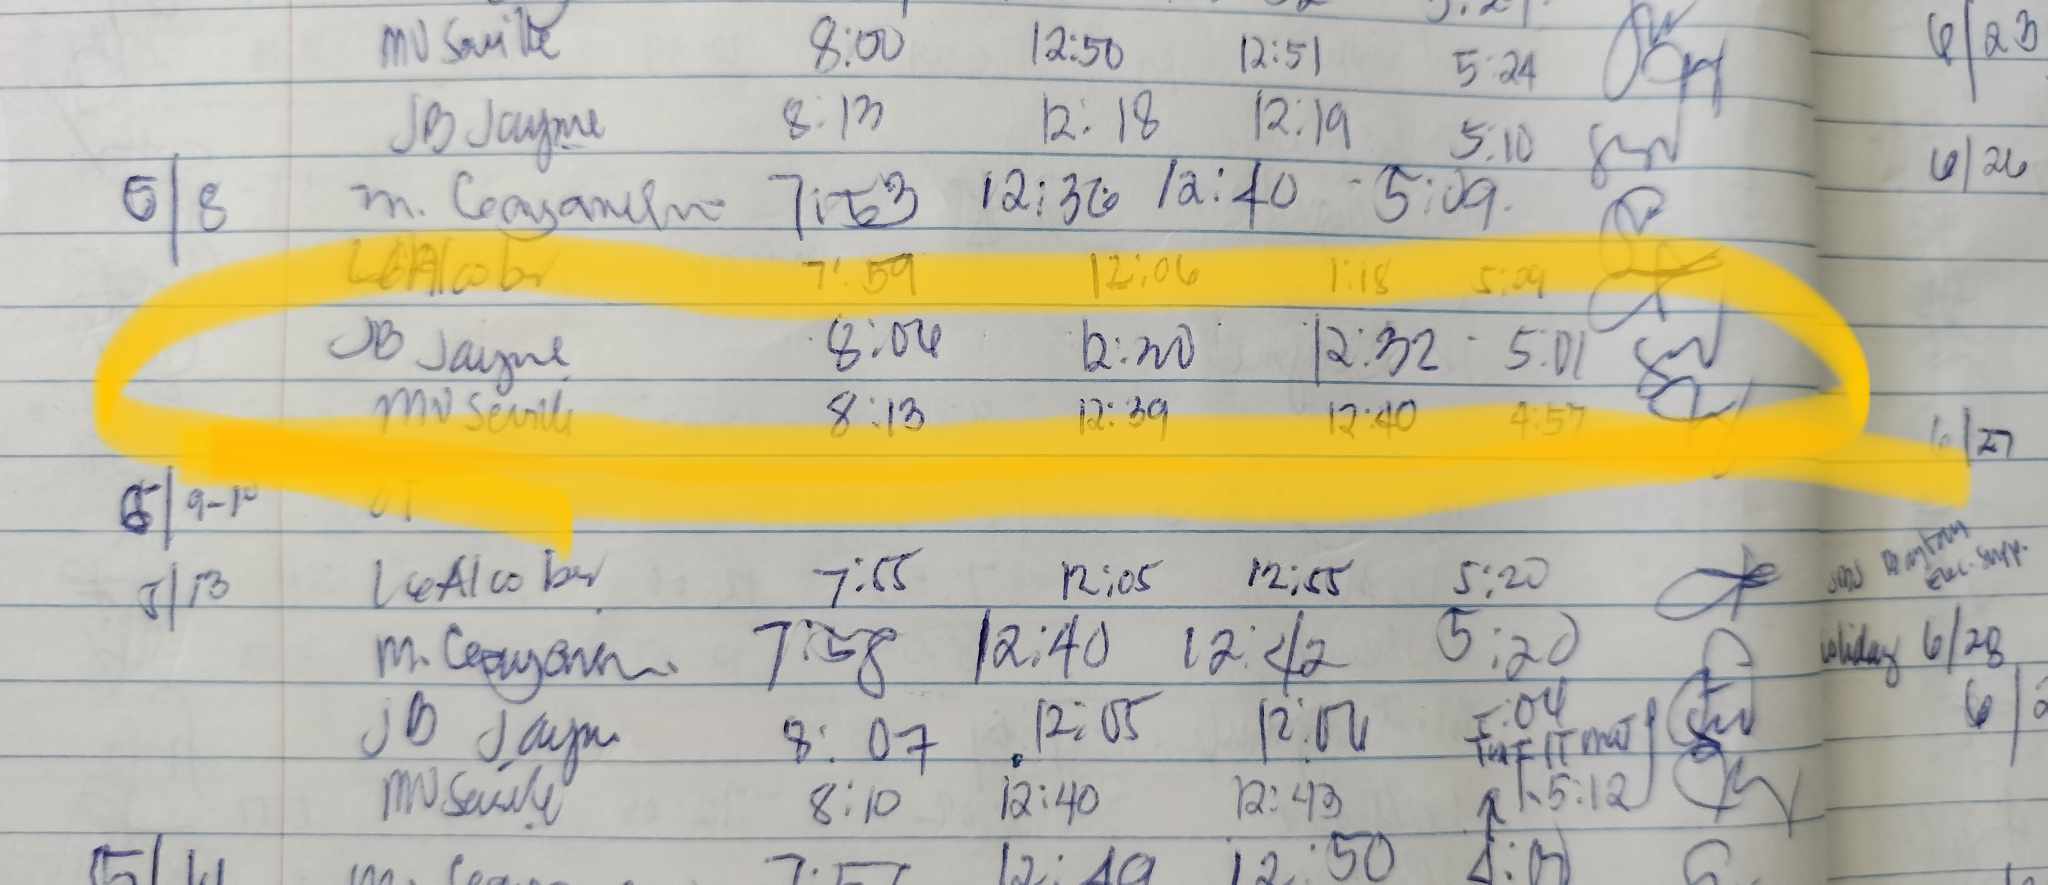 MV Seville 8:00 12:50 12:51 5:24
JB Jayme 8:13 12:18 12:19 5:10
5/8 m. 7:53 12:36 12:40 5:09
LGAlcober 7:59 12:06 1:18 5:09
JB Jayme 8:06 12:30 12:32 5:01
MV Seville 8:13 12:39 12:40 4:57
5/9-10 OT
5/13 LGAlcober 7:55 12:05 12:55 5:20
m. 7:58 12:40 12:42 5:20
JB Jayme 8:07 12:05 12:06 5:04
MV Seville 8:10 12:40 12:43 5:12
m. 12:49 12:50
6/23
6/26
6/27
holiday 6/28